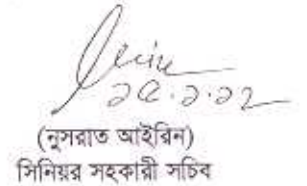 ২৫.১.১২
(নুসরাত আইরিন)
সিনিয়র সহকারী সচিব